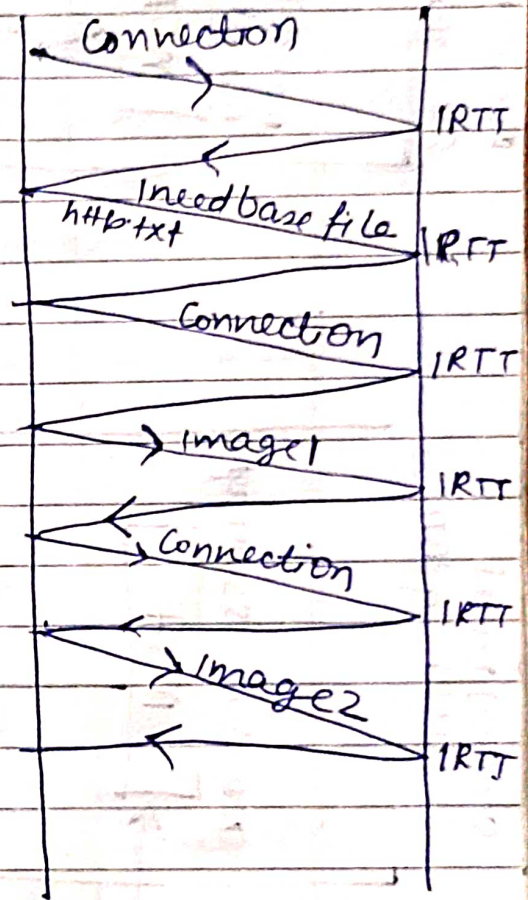 Connection
1RTT
I need base file
http.txt
1RTT
Connection
1RTT
image1
1RTT
Connection
1RTT
image2
1RTT